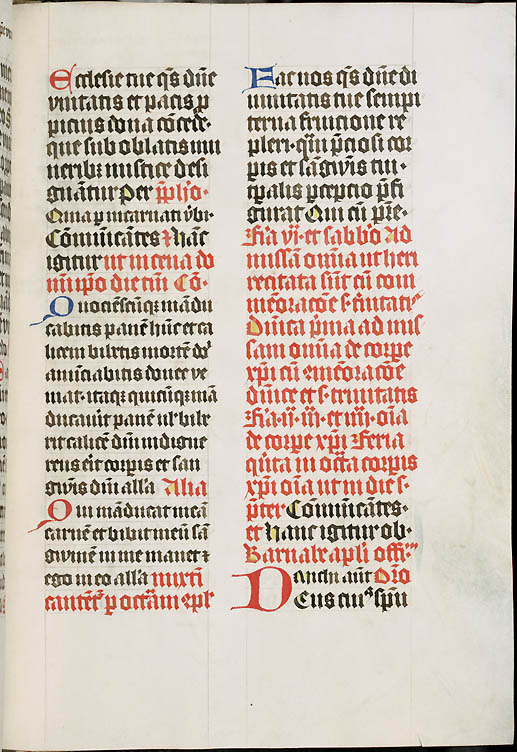 Ecclesie tue qs dne
vnitatis et pacis p
picius dona concede·
que sub oblatis mu
neribz mistice desi
gnantur Per pplio·
Quia p incarnati vbi·
Comunicantes z hanc
igitur ut in cena do
mini ipo die tm Co·
Quociescunqz mandu
cabitis panem hunc et ca
licem bibetis mortem dni
annunciabitis donec ve
niat· itaqz quicunqz man
ducauit panem uel bibe
rit calicem dni indigne
reus erit corporis et san
guinis dni alla Alia
Qui manducat mea
carnem et bibit meum san
guinem in me manet z
ego in eo alla
Fac nos qs dne di
uinitatis tue sempi
terna fruicione re
pleri· quam preciosi cor
poris et sanguinis tui·
temporalis percepcio prefi
gurat Qui cum patre·
Feria vi· et sabbo Ad
missam omnia ut heri
recitata sunt cum com
memoracoe s· trinitatis
Dominica prima ad mis
sam omnia de corpore
xpi cum memoracoe
dominice et s· trinitatis
Feria· ii· iii· et iiii· oia
de corpore xpi Feria
quinta in octava corporis
xpi oia ut in die s·
preter Comunicantes·
et Hanc igitur ob·
Barnabe apli offm
Sancti ant Oro
Deus cui9 spu